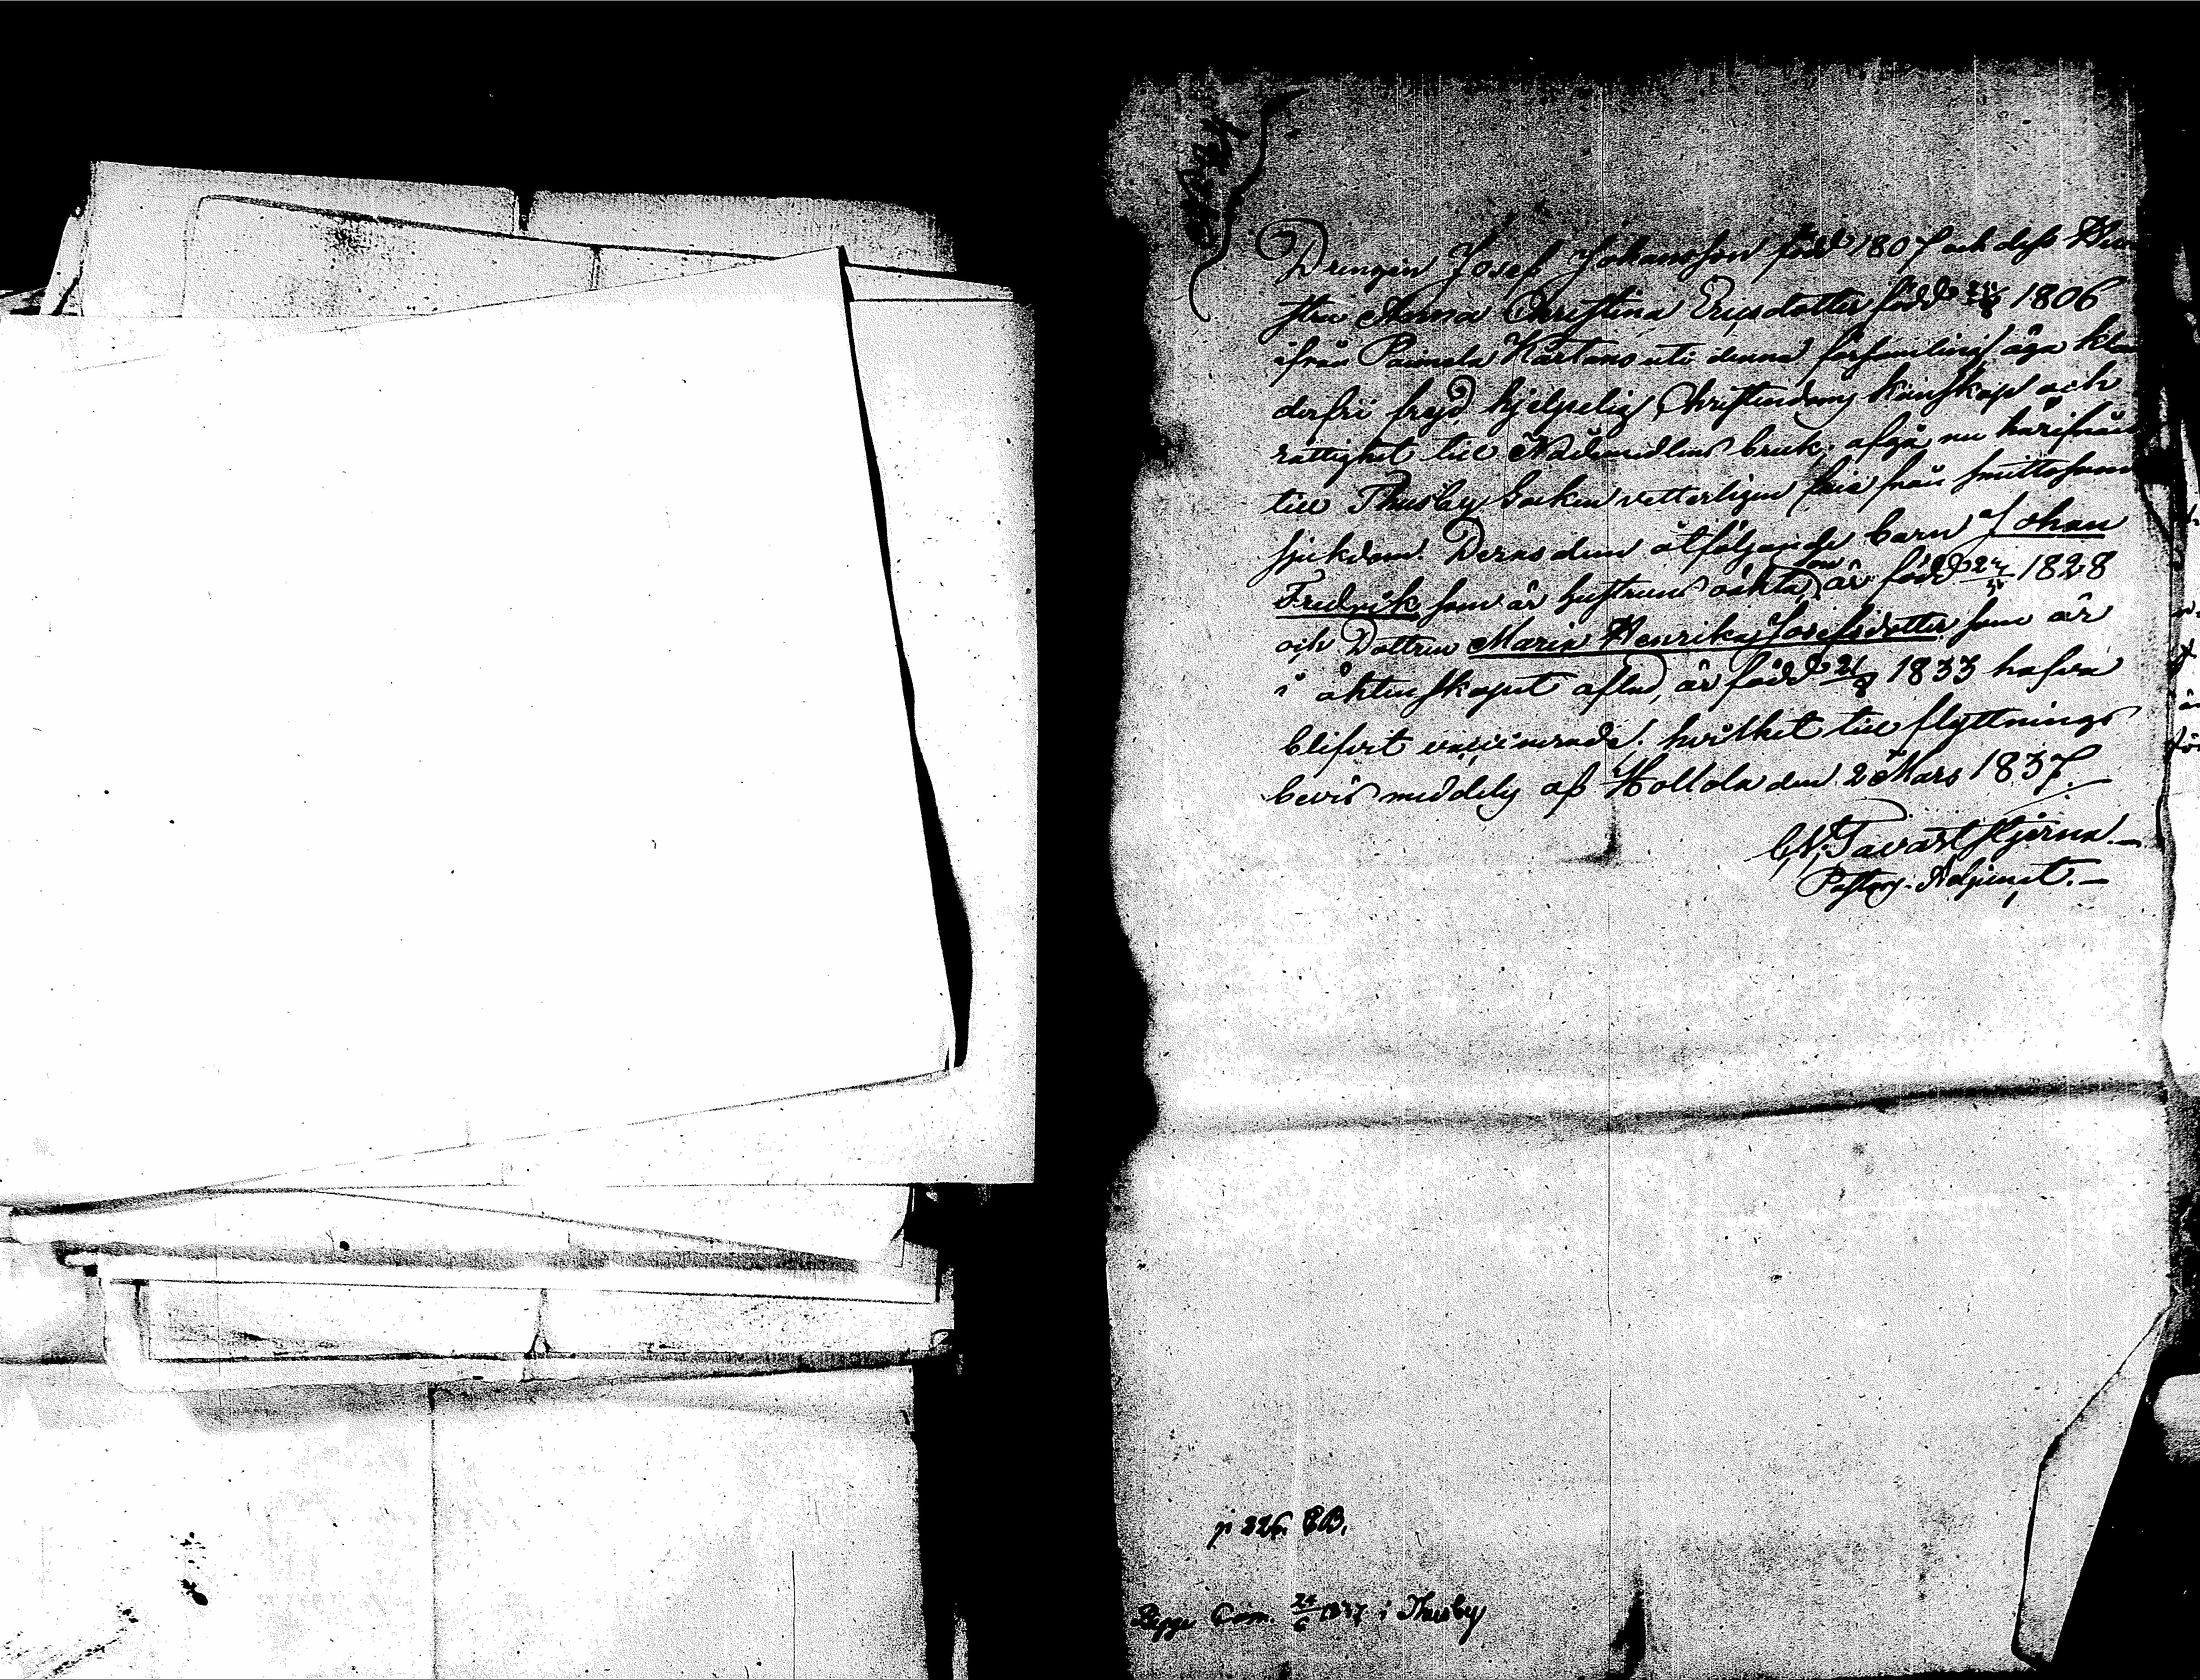 Drengen Josef Johansson född 1807 och dess Hu
stru Anna Christina Ericsdotter född 1806
ifrån Paimela Kartano uti denna församling äga klan
derfri frejd, hjelpelig Christendoms kunskap och
rättighet till Nådemedlens bruk, afgå nu härifrån
till Thusby Socken vetterligen fria från smittosam
sjukdom. Deras dem åtföljande barn Johan
Fredrik som är hustruns oäkta son är född 1828
och Dottren Maria Henrika Josefsdotter som är
i äktenskapet aflad, är född 21/8 1833 hafva
blifvit vaccinerade. hvilket till flyttnings
bevis meddelas af Hollola den 2 Mars 1837.
C.N. Tavaststjerna.
Pastors-Adjunct.
p 326. CB.
Begge Com. 24/6 1837 i Thusby